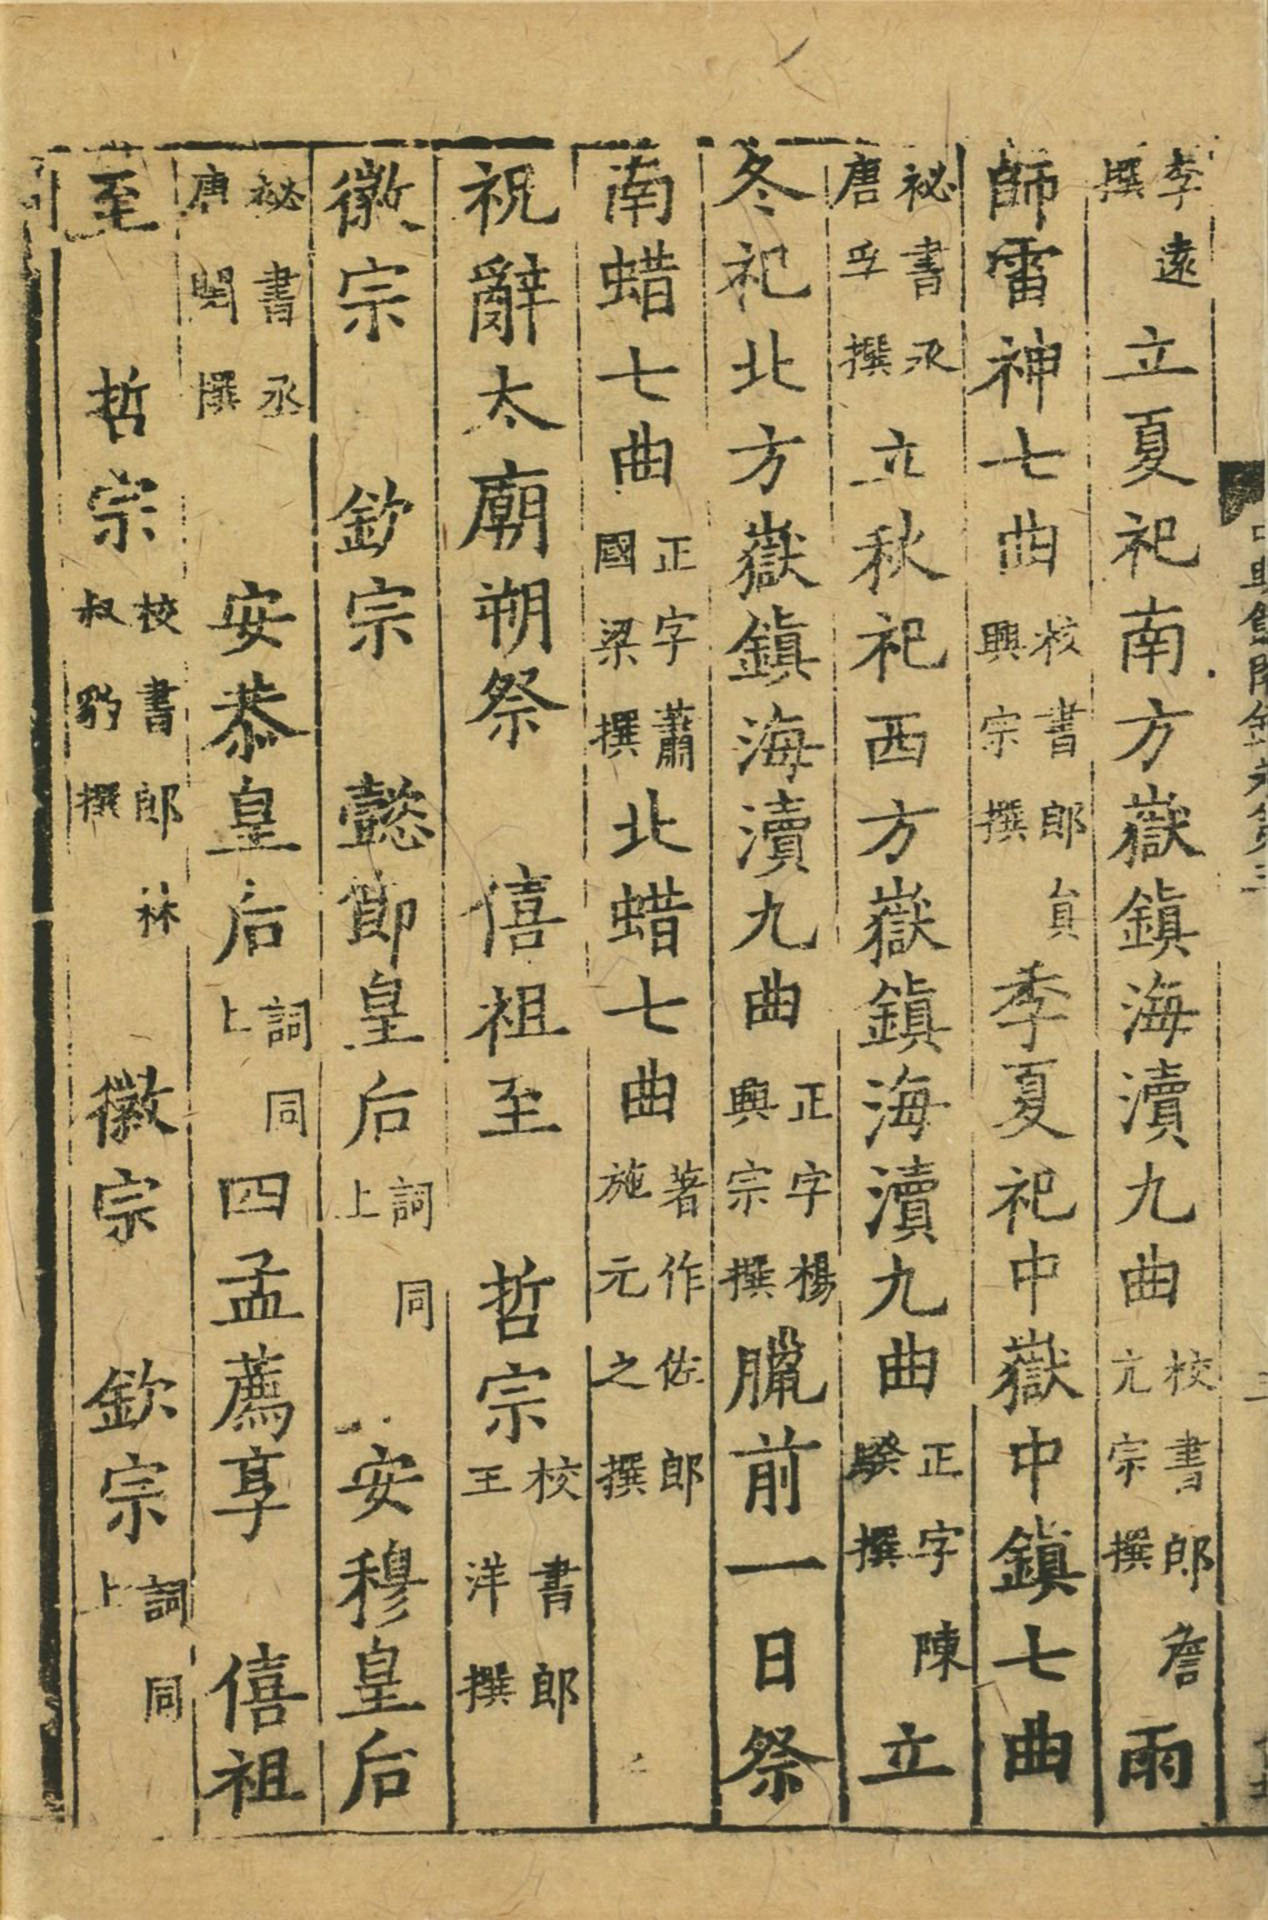 李遠撰　立夏祀南方嶽鎮海瀆九曲校書郎詹亢宗撰雨
師雷神七曲校書郎員興宗撰　季夏祀中嶽中鎮七曲
秘書丞唐孚撰　立秋祀西方嶽鎮海瀆九曲正字陳騤撰　立
冬祀北方嶽鎮海瀆九曲正字楊興宗撰臘前一日祭
南蜡七曲正字蕭國梁撰北蜡七曲著作佐郎施元之撰
祝辭太廟朔祭　僖祖至　哲宗校書郎王洋撰
徽宗　欽宗　懿節皇后詞同上　安穆皇后
秘書丞唐閱撰　安恭皇后詞同上四孟薦享　僖祖
至　哲宗校書郎林叔豹撰　徽宗　欽宗詞同上